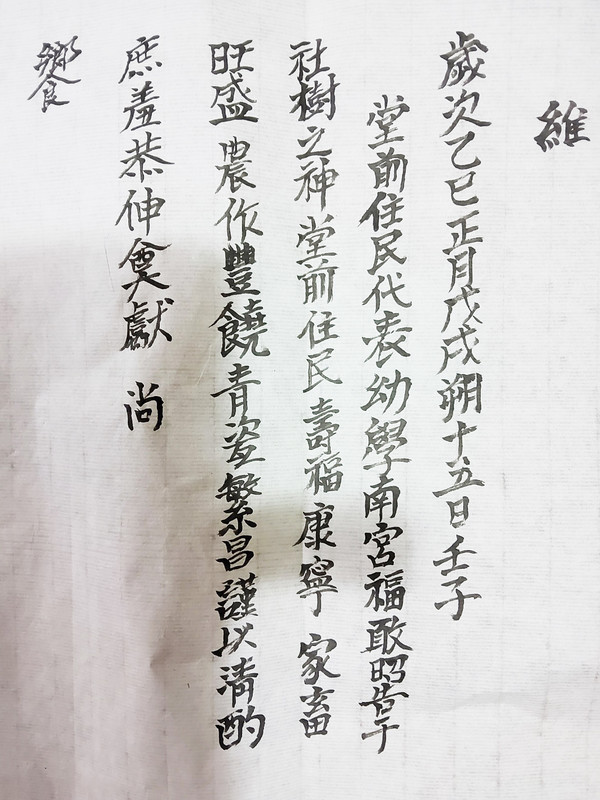 維
歲次乙巳正月戊戌朔十五日壬子
堂前住民代表幼學南宮福敢昭告于
社樹之神堂前住民壽福康寧 家畜
旺盛 農作豐饒青瓷繁昌謹以淸酌
庶羞恭伸奠獻 尚
饗